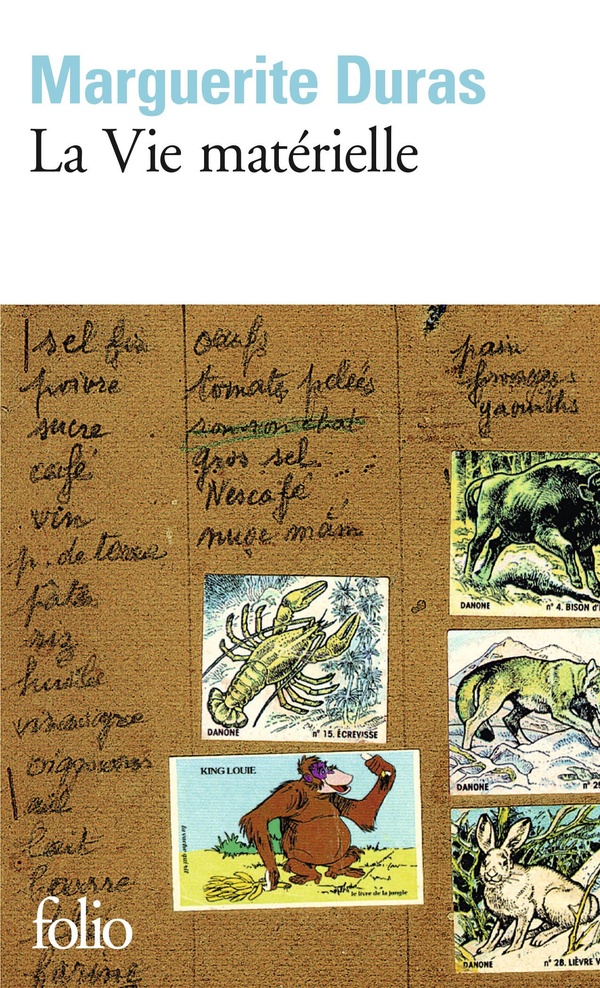 Marguerite Duras
La Vie matérielle
sel fin
poivre
sucre
café
vin
p. de terre
pâtes
riz
huile
vinaigre
oignons
ail
lait
beurre
farine
œufs
tomates pelées
son son chat
gros sel
Nescafé
nuoc mâm
pain
fromages
yaourths
DANONE
n° 4. BISON d'
DANONE
n° 15. ÉCREVISSE
DANONE
n° 29
KING LOUIE
la vache qui rit
le livre de la jungle
DANONE
n° 28. LIÈVRE V
folio